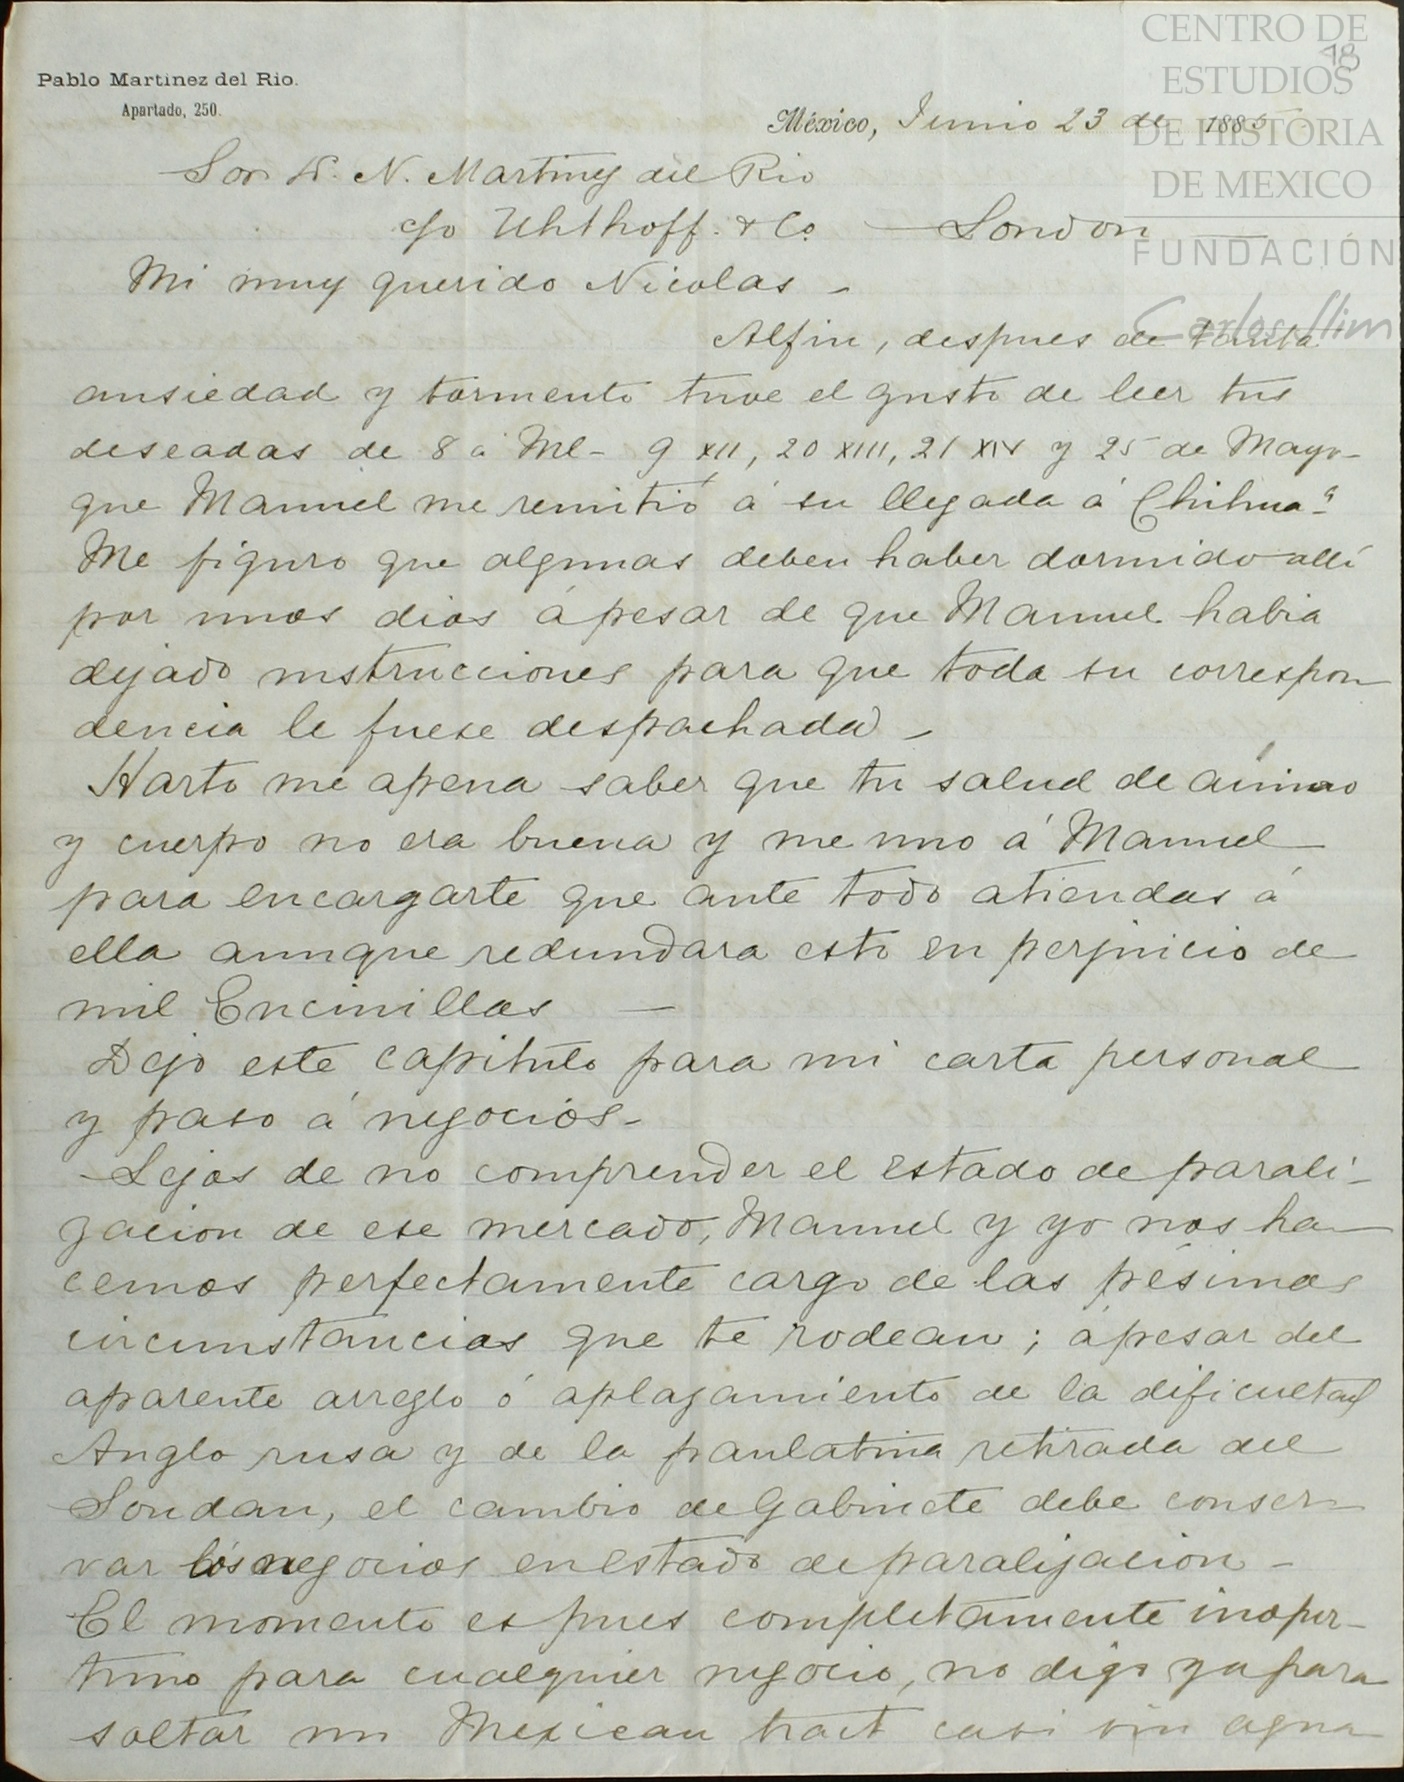 CENTRO DE
ESTUDIOS
DE HISTORIA
DE MEXICO
FUNDACIÓN
Carlos Slim
18
Pablo Martinez del Rio.
Apartado, 250.
México, Junio 23 de 1885
Sor D. N. Martinez del Rio
c/o Uhthoff. & Co. — London —
Mi muy querido Nicolas –
Alfin, despues de tanta
ansiedad y tormento tuve el gusto de leer tus
deseadas de 8 á Ml- 9 XII, 20 XIII, 21 XIV y 25 de Mayo-
que Manuel me remitió á su llegada á Chihuaª
Me figuro que algunas deben haber dormido allí
por unos dias ápesar de que Manuel habia
dejado instrucciones para que toda su correspon
dencia le fuese despachada –
Harto me apena saber que tu salud de ánimo
y cuerpo no era buena y me uno á Manuel
para encargarte que ante todo atiendas á
ella aunque redundara esto en perjuicio de
mil Encinillas —
Dejo este capitulo para mi carta personal
y paso á negocios-
Lejos de no comprender el estado de parali-
zacion de ese mercado, Manuel y yo nos ha
cemos perfectamente cargo de las pésimas
circumstancias que te rodean ; ápesar del
aparente arreglo ó aplazamiento de la dificultad
Anglo rusa y de la paulatina retirada del
Soudan, el cambio de Gabinete debe conser-
var los negocios en estado de paralizacion –
El momento es pues completamente inopor-
tuno para cualquier negocio, no digo ya para
soltar un Mexican tract casi sin agua